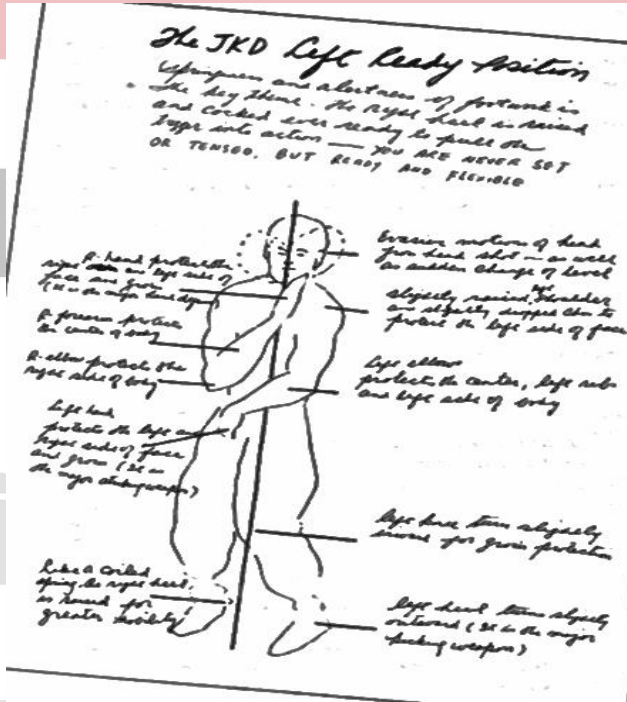 The JKD Left Ready Position
Springiness and alertness of footwork is
the key theme. The right heel is raised
and cocked ever ready to pull the
trigger into action — YOU ARE NEVER SET
OR TENSED, BUT READY AND FLEXIBLE
R. hand protects the
right and left side of
face and groin
(It is the major
R. forearm protects
the center of body
R. elbow protects the
right side of body
Left hand
protects the left and
right side of face
and groin (It is
the major attacking weapon)
Like a coiled
spring the right heel
is raised for
greater mobility
Evasive motions of head
from head shot — as well
as sudden change of level
slightly raised left shoulder
and slightly dropped chin to
protect the left side of face
Left elbow
protects the center, left ribs
and left side of body
left knee turns slightly
inward for groin protection
left heel turns slightly
outward (It is the major
kicking weapon)